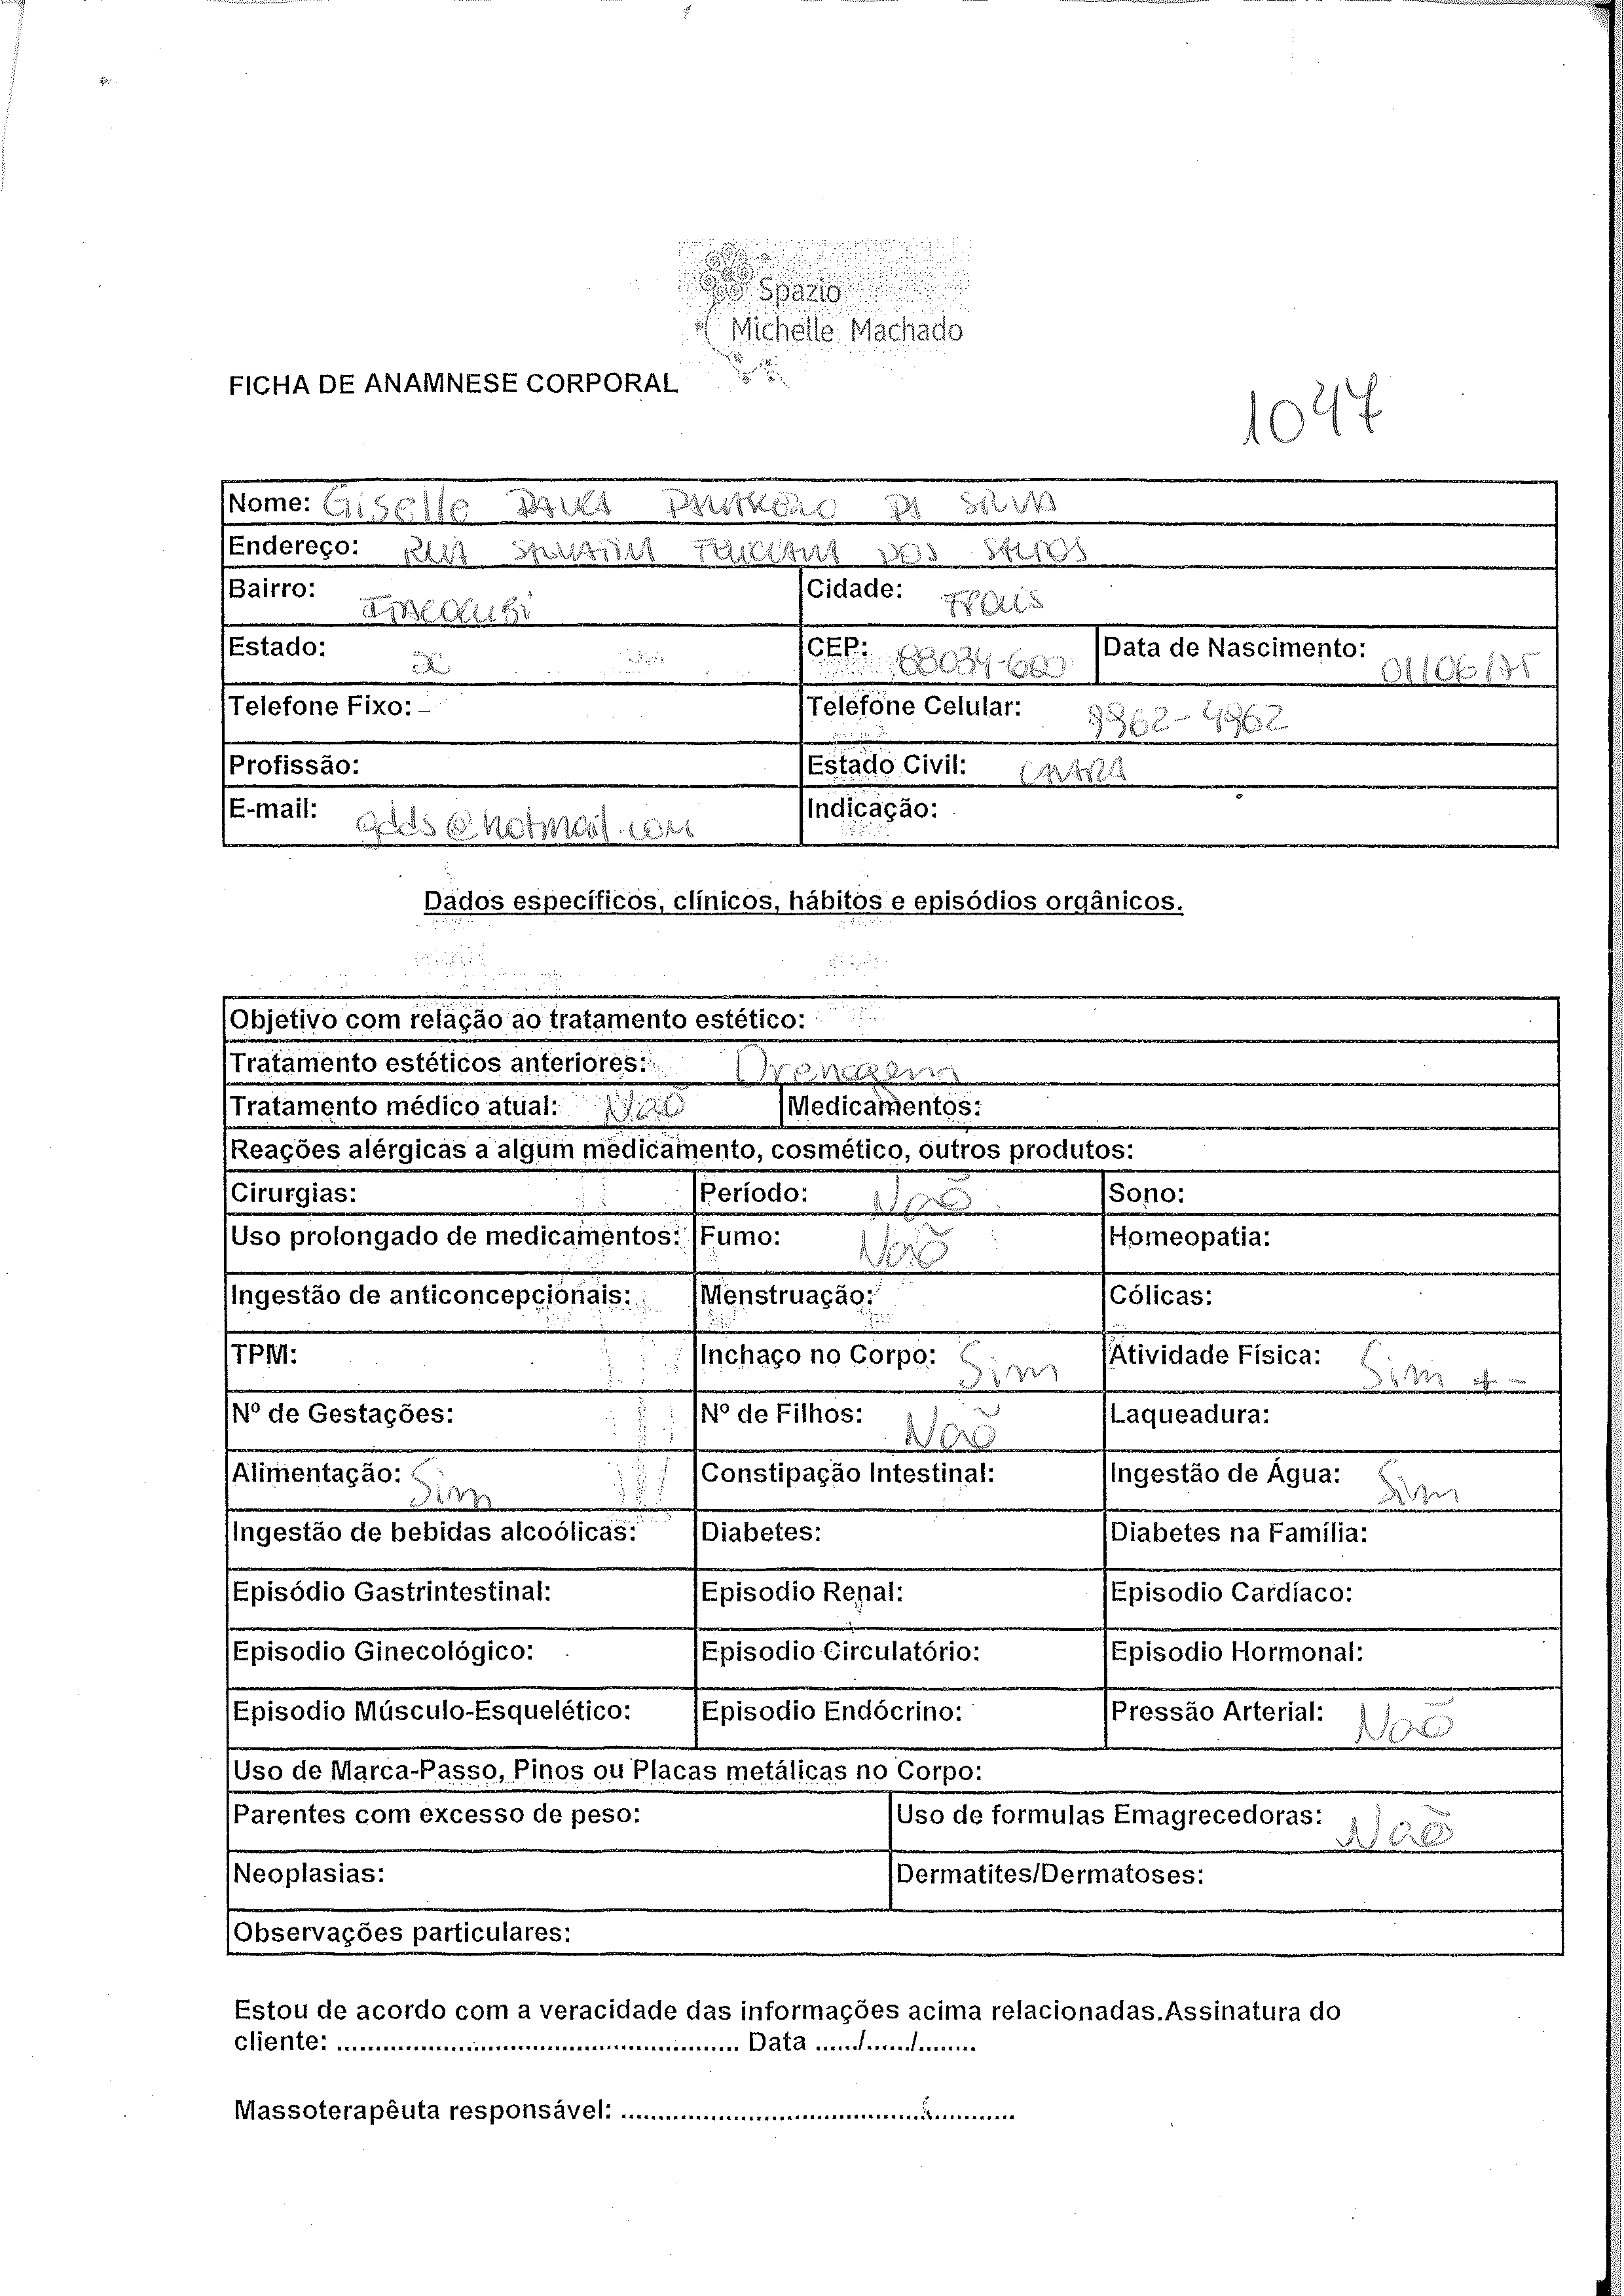 Spazio
Michelle Machado
FICHA DE ANAMNESE CORPORAL
1047
Nome: Giselle DA SILVA
Endereço: RUA DOS SANTOS
Bairro: ITACORUBI Cidade: FPOLIS
Estado: SC CEP: 88034-600 Data de Nascimento: 01/06/75
Telefone Fixo: - Telefone Celular: 9962-4962
Profissão: Estado Civil: CASADA
E-mail: gdds@hotmail.com Indicação:
Dados específicos, clínicos, hábitos e episódios orgânicos.
Objetivo com relação ao tratamento estético:
Tratamento estéticos anteriores: Drenagem
Tratamento médico atual: Não Medicamentos:
Reações alérgicas a algum medicamento, cosmético, outros produtos:
Cirurgias: Período: Não Sono:
Uso prolongado de medicamentos: Fumo: Não Homeopatia:
Ingestão de anticoncepcionais: Menstruação: Cólicas:
TPM: Inchaço no Corpo: Sim Atividade Física: Sim + -
Nº de Gestações: Nº de Filhos: Não Laqueadura:
Alimentação: Sim Constipação Intestinal: Ingestão de Água: Sim
Ingestão de bebidas alcoólicas: Diabetes: Diabetes na Família:
Episódio Gastrintestinal: Episodio Renal: Episodio Cardíaco:
Episodio Ginecológico: Episodio Circulatório: Episodio Hormonal:
Episodio Músculo-Esquelético: Episodio Endócrino: Pressão Arterial: Não
Uso de Marca-Passo, Pinos ou Placas metálicas no Corpo:
Parentes com excesso de peso: Uso de formulas Emagrecedoras: Não
Neoplasias: Dermatites/Dermatoses:
Observações particulares:
Estou de acordo com a veracidade das informações acima relacionadas.Assinatura do
cliente: .................................................. Data ....../....../........
Massoterapêuta responsável: ..................................................